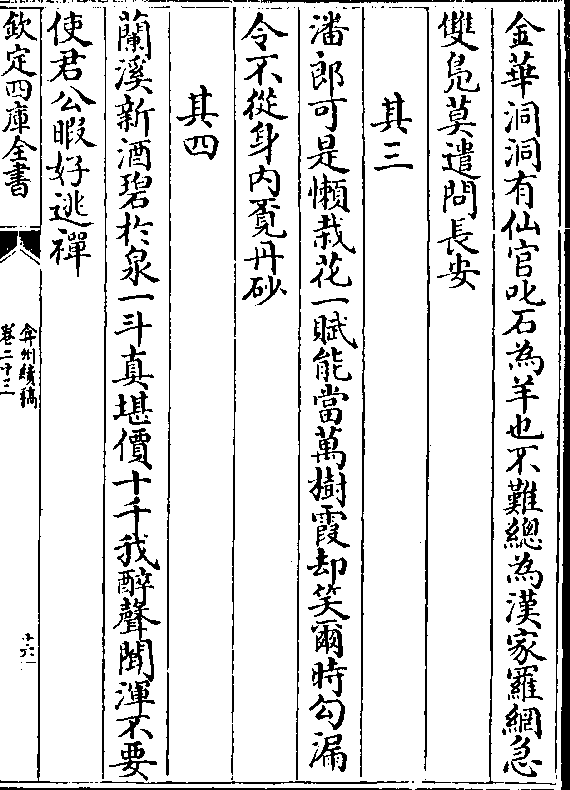 金華洞洞有仙官叱石為羊也不難總為漢家羅網急
雙鳬莫遣問長安
其三
潘郎可是懶栽花一賦能當萬樹霞却笑爾時勾漏
令不從身内覔丹砂
其四
蘭溪新酒碧於泉一斗真堪價十千我醉聲聞渾不要
使君公暇好逃禪
欽定四庫全書
弇州續稿
卷二十三
十六